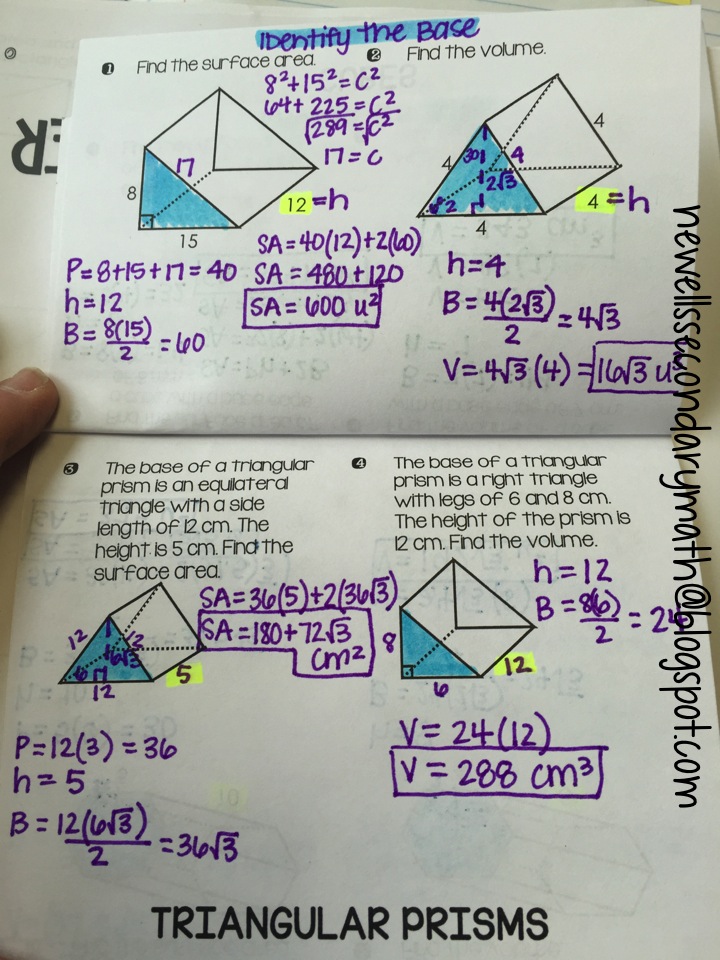 Identify the Base
1 Find the surface area.
8² + 15² = c²
64 + 225 = c²
√289 = √c²
17 = c
17
8
15
12 = h
SA = 40(12) + 2(60)
P = 8+15+17 = 40
SA = 480 + 120
h = 12
SA = 600 u²
B = 8(15)/2 = 60
2 Find the volume.
4
4
30
4
2√3
2
4
4 = h
h = 4
B = 4(2√3)/2 = 4√3
V = 4√3 (4) = 16√3 u
3 The base of a triangular
prism is an equilateral
triangle with a side
length of 12 cm. The
height is 5 cm. Find the
surface area.
SA = 36(5) + 2(36√3)
SA = 180 + 72√3
cm²
12
12
6√3
6
12
5
P = 12(3) = 36
h = 5
B = 12(6√3)/2 = 36√3
4 The base of a triangular
prism is a right triangle
with legs of 6 and 8 cm.
The height of the prism is
12 cm. Find the volume.
h = 12
B = 8(6)/2 = 24
8
6
12
V = 24(12)
V = 288 cm³
TRIANGULAR PRISMS
newellssecondarymath@blogspot.com